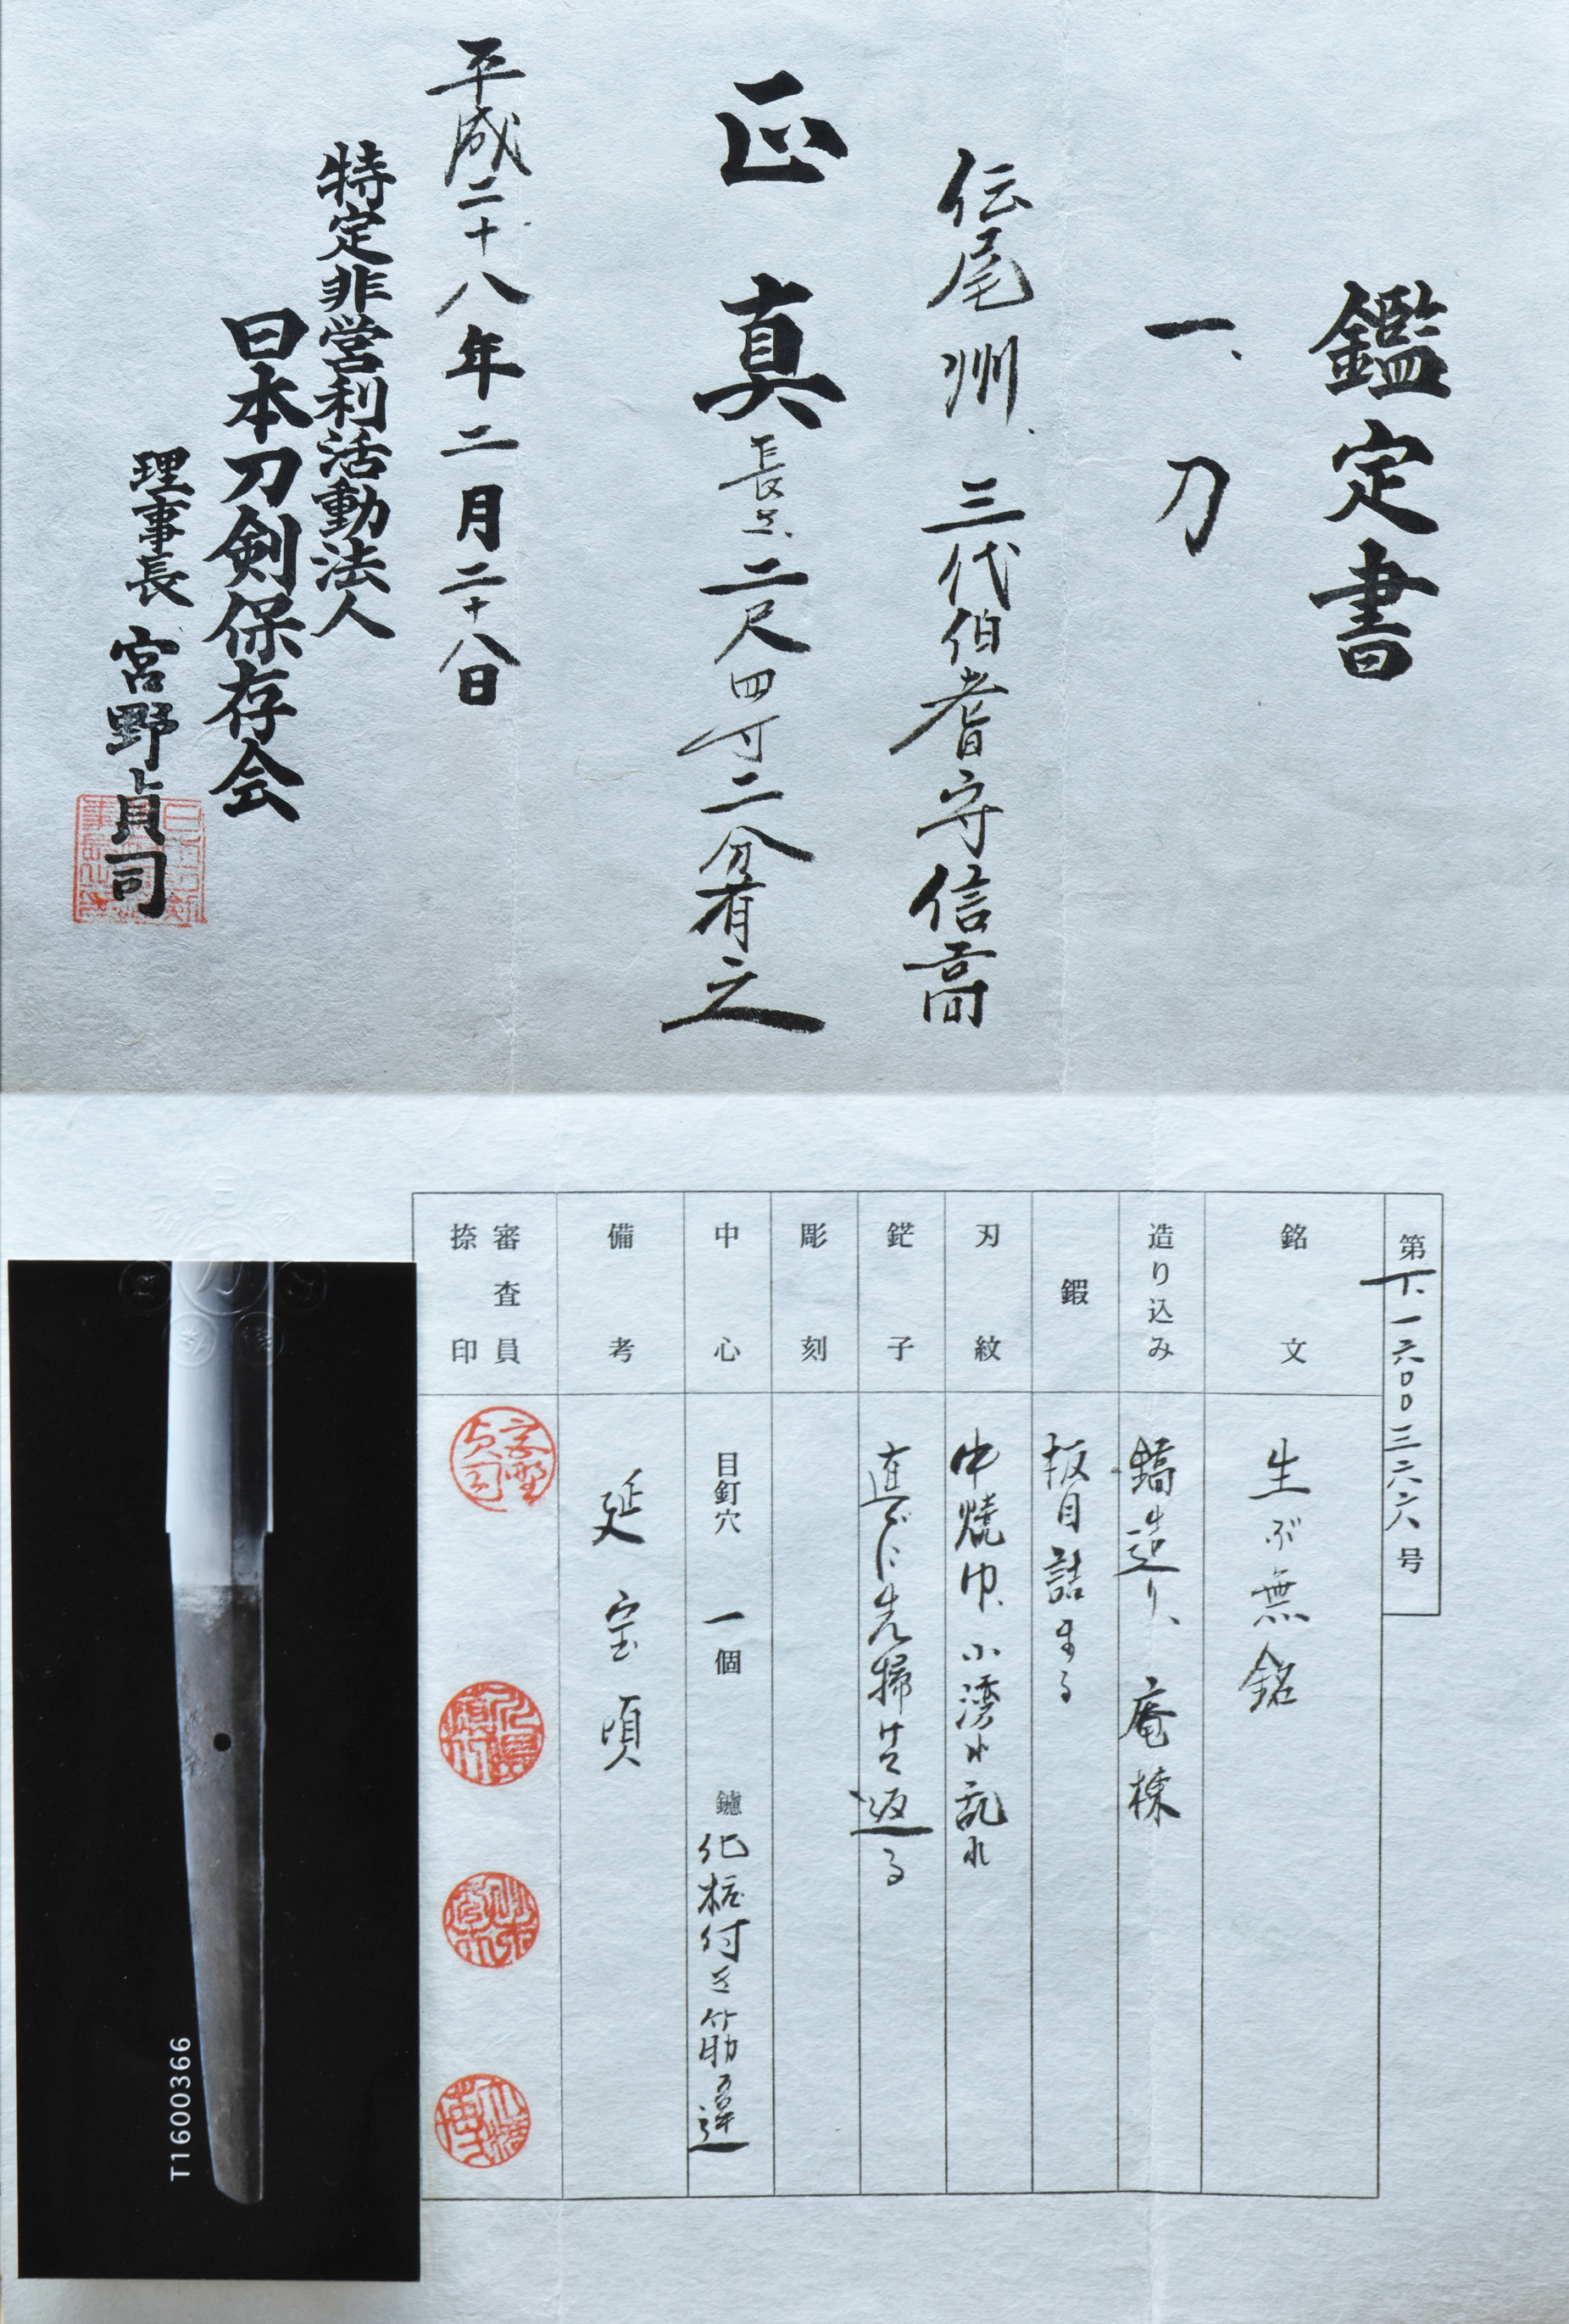 鑑定書
一、刀
伝尾州 三代伯耆守信高
正真 長さ、二尺四寸二分有之
平成二十八年二月二十八日
特定非営利活動法人
日本刀剣保存会
理事長 宮野貞司
第T.一六〇〇三六六号
銘文 生ぶ無銘
造り込み 鎬造り、庵棟
鍜 板目詰まる
刃紋 中焼巾、小湾れ乱れ
鋩子 直ぐに先掃け返る
彫刻
中心 目釘穴 一個 鑢 化粧付き筋違
備考 延宝頃
審査員捺印
T1600366